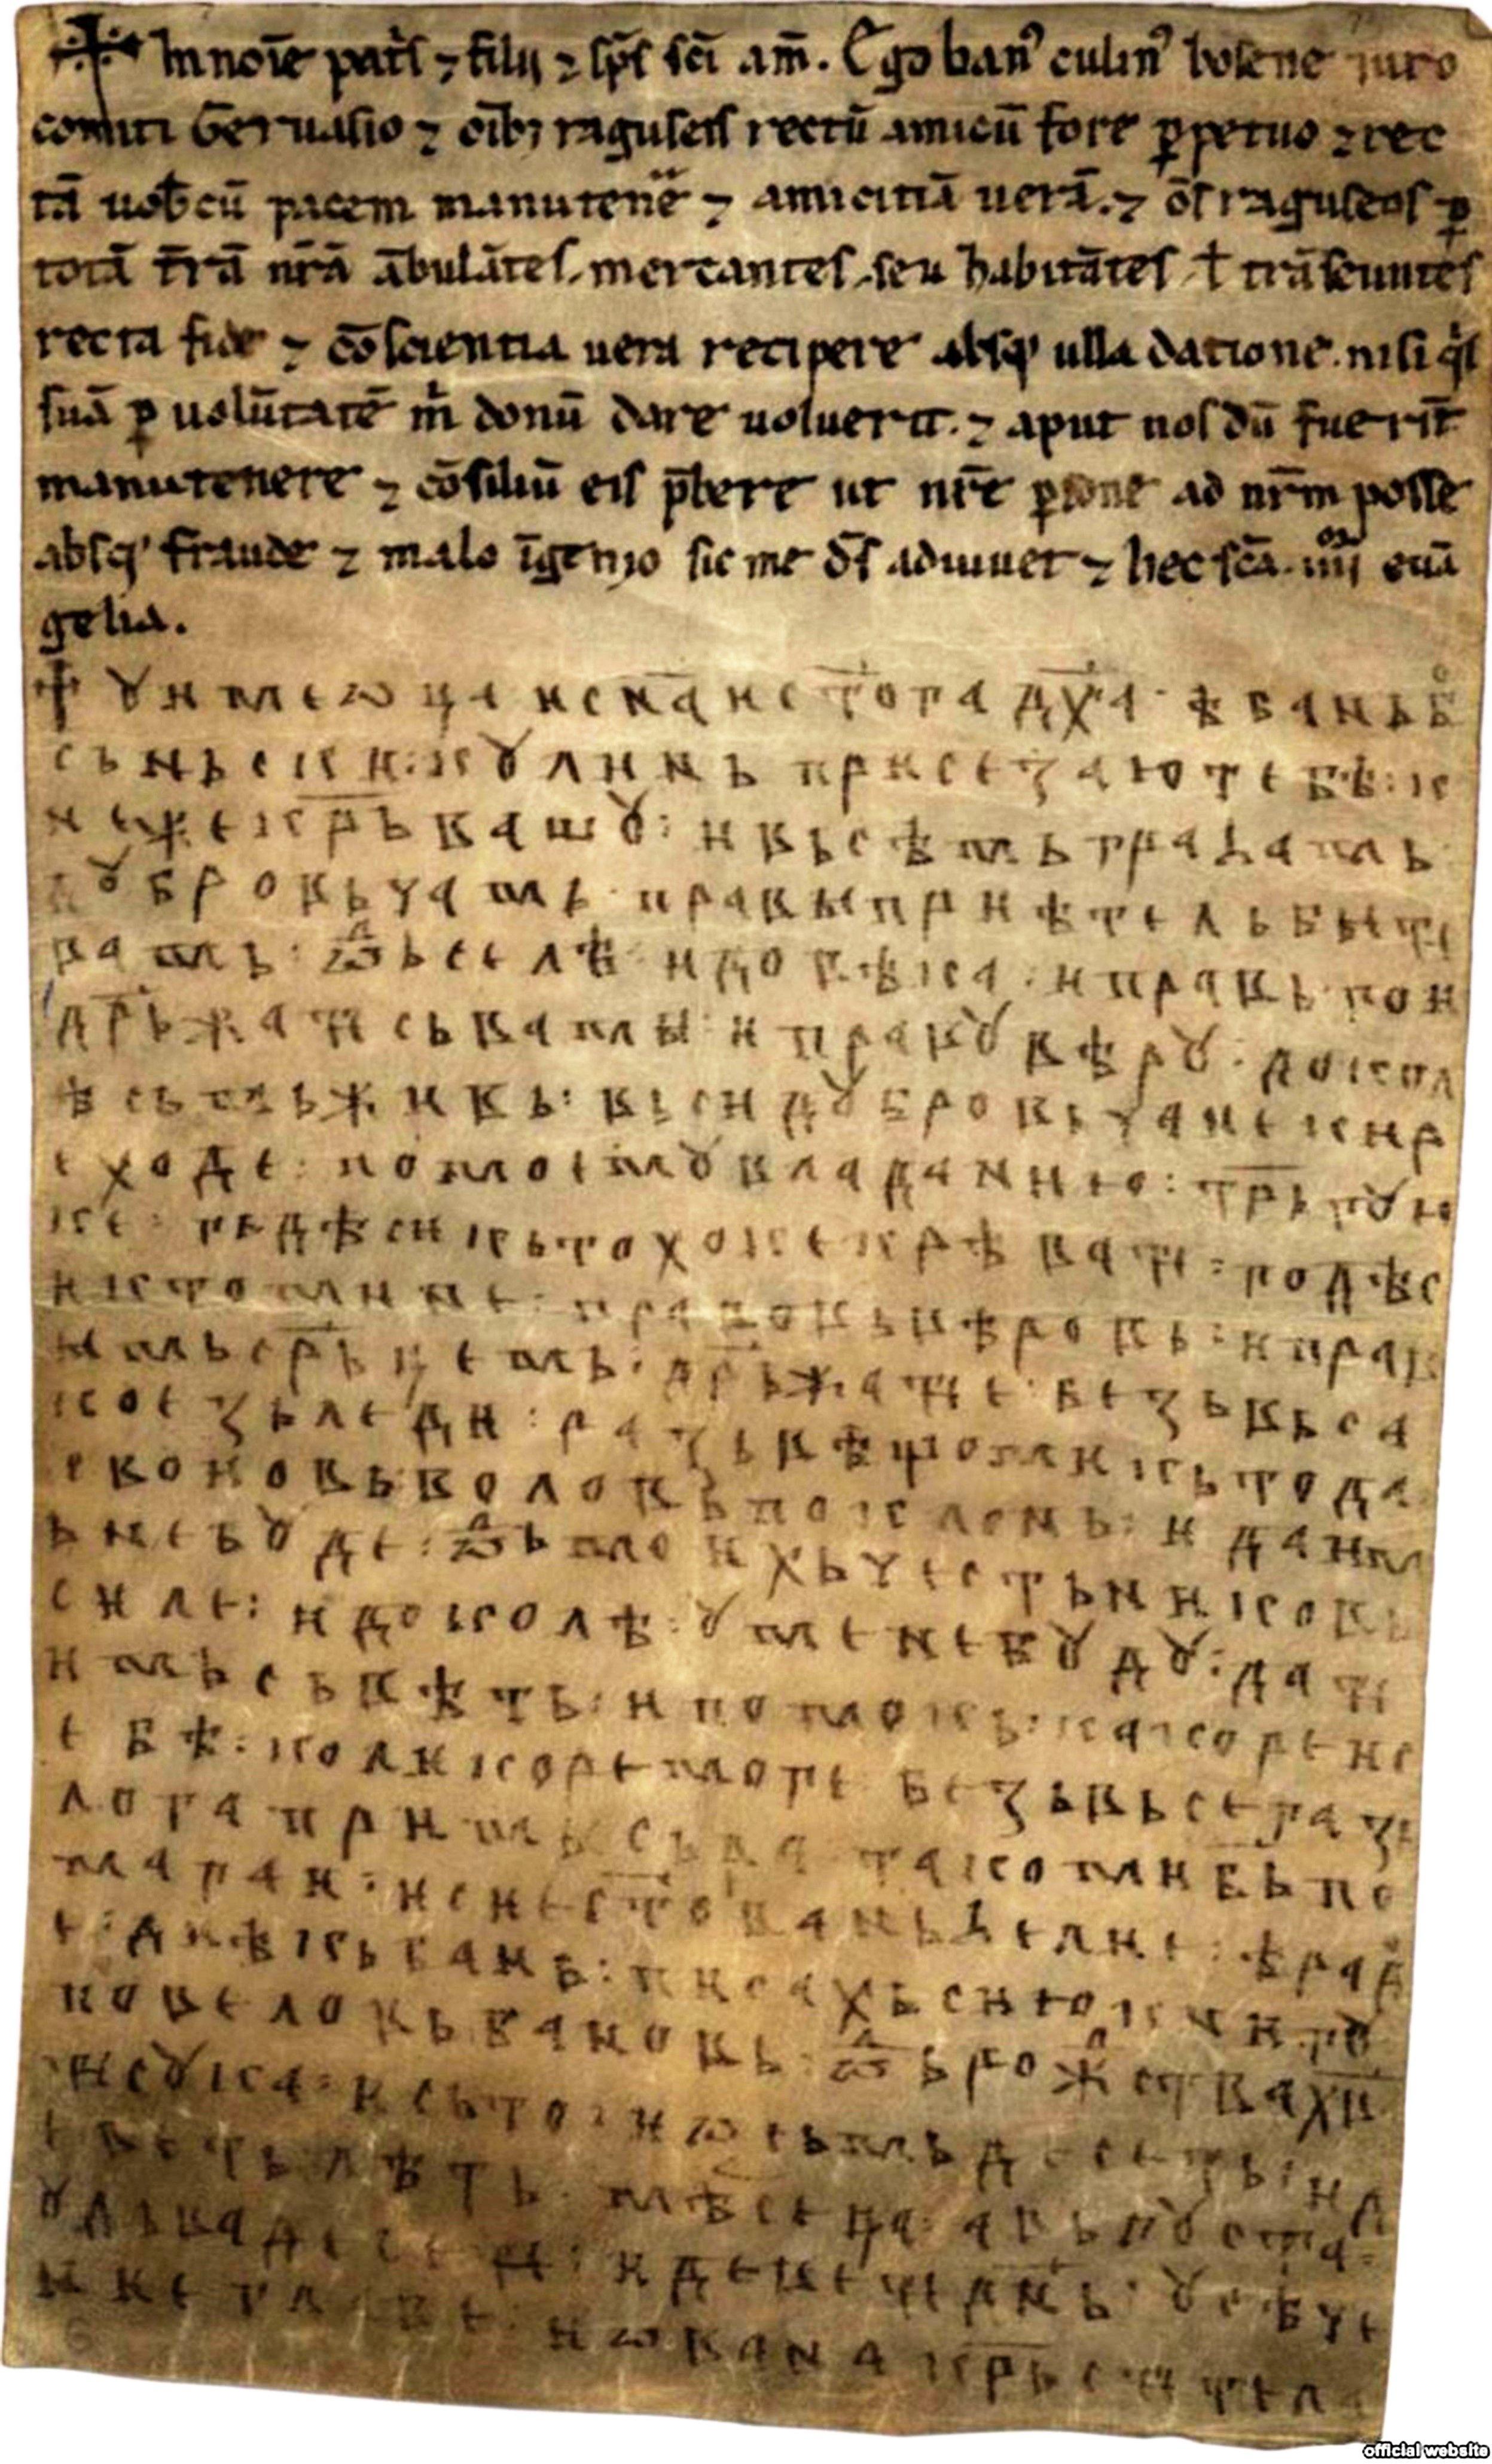 ✝ In noīe patͥs ⁊ filij ⁊ sp̄s sc̄i am̄. Ego banꝰ culinꝰ bosene iuro
comiti Geruasio ⁊ oīb; raguseis rectū amicū fore ꝑpetuo ⁊ rec
tā uob̄cū pacem manutenē ⁊ amicitiā uerā. ⁊ ōs raguseos ꝑ
totā t̄rā nr̄ā ābulātes. mercantes. seu habitātes ł trāseuntes
recta fide ⁊ cōscientia uera recipere absqꝫ ulla datione. nisi qͥs
suā ꝑ uolūtatē m̄ donū dare uoluerit. ⁊ aput nos dū fuerīt
manutenere ⁊ cōsiliū eis p̄bere ut nr̄e ꝑsone ad nr̄m posse
absqꝫ fraude ⁊ malo īgenio sic me d̄s adiuuet ⁊ hec sc̄a. iiijoꝛ euā
gelia.
✝ ꙋ име ѡца и сн҃а и ст҃ога дх҃а · ѣ бань бо
сьньски : кꙋлинь присезаю тебѣ : к
неже кр҃ьвашꙋ : и вьсѣмь граћамь
дꙋбровьчамь · правы приѣтель быти
вамь : ѿь селѣ · и довѣка · и правь гои
др҃ьжати сь вами : и правꙋ вѣрꙋ : докол
ѣ сьмь живь : вьси дꙋбровьчане кир
е ходе : по моемꙋ владанию : тр҃ьгꙋю
ке : гьдѣ си кьто хоке крѣвати : годѣ с
и кто мине : правовь вѣровь : и прав
ымь ср҃ьцемь : др҃ьжати е · безь вьса
кое зьледи : разьвѣ що ми кьто да
с воиовь воловь поклонь : и да им
ь не бꙋде : ѿь моихь чьстьниковь
силе : и доколѣ · ꙋ мене бꙋдꙋ : дати
имь сьвѣть : и помокь : какоре и с
ебѣ : коликоре море · безь вьсега зь
лога примысьла · тако ми б҃ь по
магаи : и сие ст҃о еваньћелие : ѣ рад
е диѣкь бань : писахь сию книгꙋ
повеловь бановь : ѿь рожства х҃в
ꙋка : и сьто : и ѡсьмь десеть : и д
еветь лѣть · мѣсеца · авьгꙋста ·
ꙋ дьвадесети : и девети д҃нь · ꙋсѣче
ние главе : иѡвана кр҃ьстител